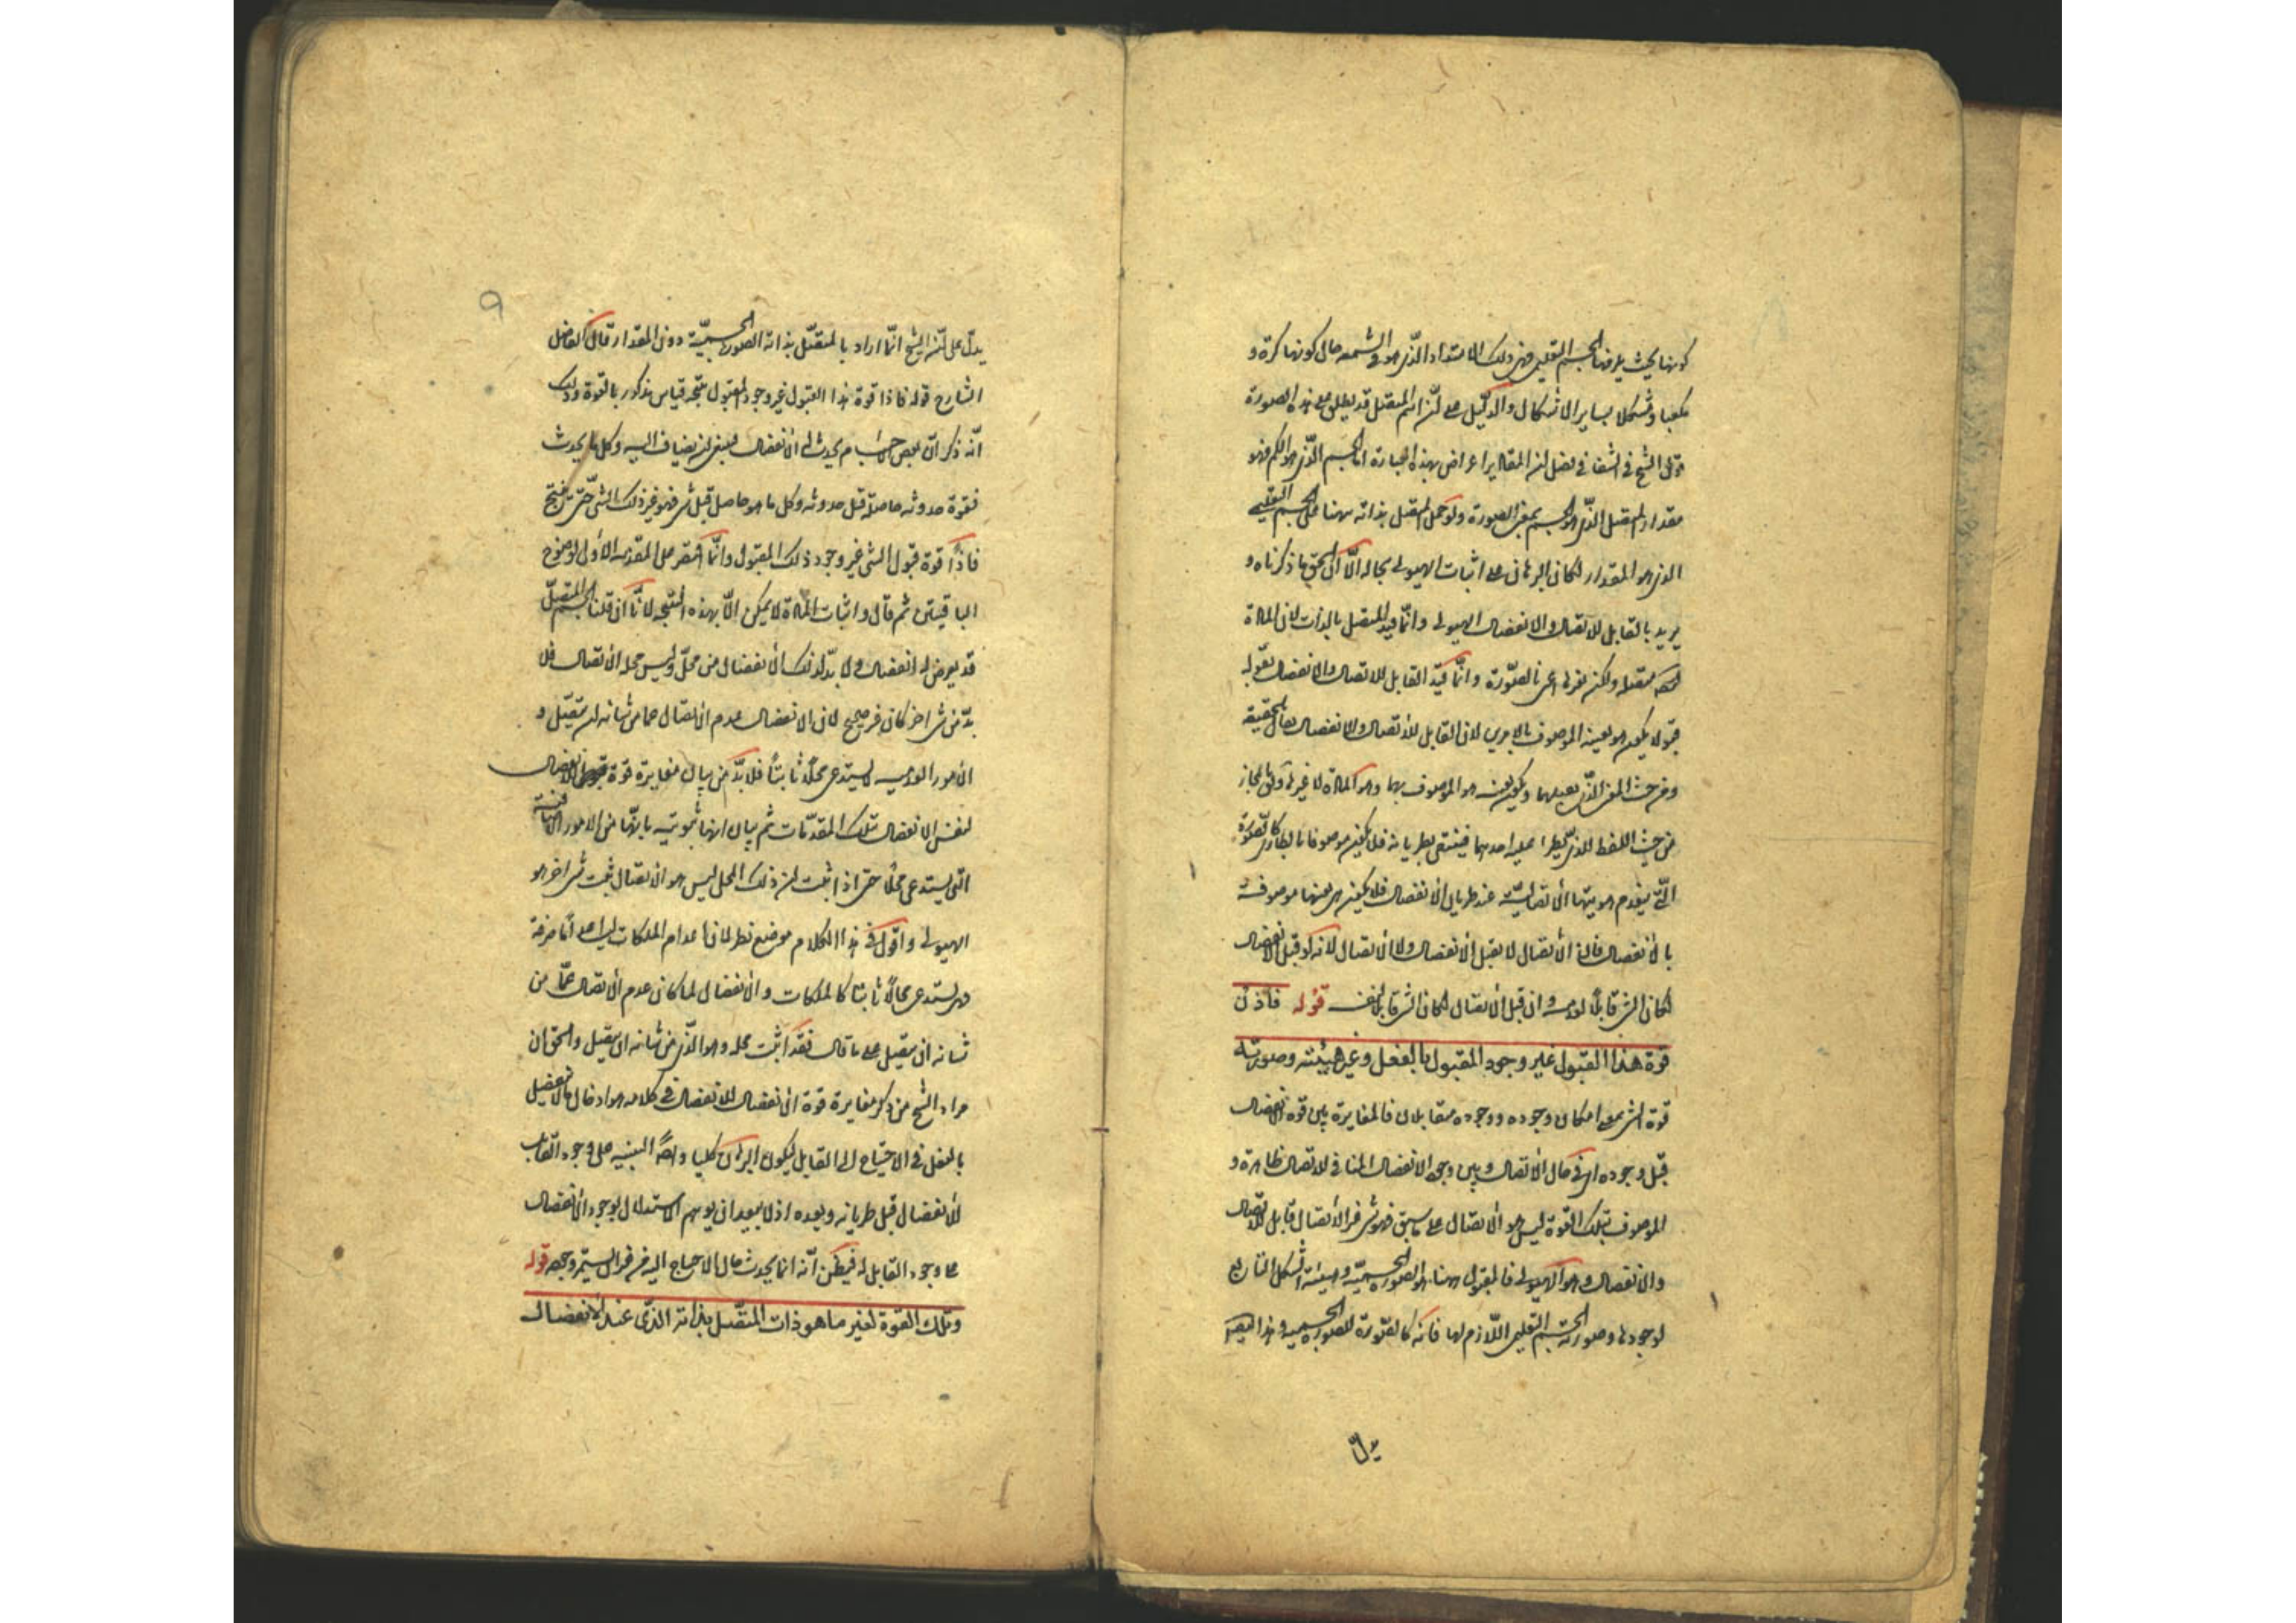 كونها بحيث يلزمها الجسم التعليمي فهى ذلك الامتداد الذى هو فى الشمعه حال كونها كرة و
مكعبا ومشكلا بساير الاشكال والدليل على ان اسم المتصل قد يطلق على هذه الصورة
قول الشيخ فى الشفا فى فصل ان المقادير اعراض بهذه العبارة اما الجسم الذى هو الكم فهو
مقدار المتصل الذى هو الجسم بمعنى الصورة ولو حمل المتصل بذاته ههنا على الجسم التعليمى
الذى هو المقدار لكان البرهان على اثبات الهيولى بحاله الا ان الحق ما ذكرناه و
يريد بالقابل للاتصال والانفصال الهيولى وانما قيد المتصل بالذات لان المادة
متصلة ولكن لغيرها اعنى الصورة وانما قيد القابل للاتصال والانفصال بقوله
قبولا يكون هو بعينه الموصوف بالامرين لان القابل للاتصال والانفصال بالحقيقة
ومن حيث المعنى الذى يقبلهما ويكون بعينه هو الموصوف بهما وهو المادة لا غير
من حيث اللفظ الذى يطرا عليه احدهما فينتفى بطريانه فلا يكون موصوفا بالطارى كالصورة
التى ينعدم هويتها الاتصالية عند طريان الانفصال فلا يكون هى بعينها موصوفة
بالانفصال فاذن الاتصال لا يقبل الانفصال ولا الاتصال لانه لو قبل الانفصال
لكان الشى قابلا لعدمه وان قبل الاتصال لكان الشى قابلا لنفسه قوله فاذن
قوة هذا القبول غير وجود المقبول بالفعل وغير هيئته وصورته
قوة الشى بمعنى امكان وجوده ووجوده متقابلان فالمغايرة بين قوة الانفصال
قبل وجوده اى فى حال الاتصال وبين وجود الانفصال المنافى للاتصال ظاهرة و
الموصوف بتلك القوة ليس هو الاتصال على ما سبق فهو شى غير الاتصال قابل للاتصال
والانفصال وهو الهيولى فالمقبول ههنا هو الصورة الجسمية وهيئته الشكل التابع
لوجودها وصورته الجسم التعليمى اللازم لها فانه كالصورة للصورة الجسمية وهذا
يدل
٩
يدل على ان الشيخ انما اراد بالمتصل بذاته الصورة الجسمية دون المقدار قال الفاضل
الشارح قوله فاذا قوة هذا القبول غير وجود المقبول نتيجة قياس مذكور بالقوة وذلك
انه ذكر ان بعض الاجسام يحدث له الانفصال فينبغى ان يضاف اليه وكل ما يحدث
فقوة حدوثه حاصلة قبل حدوثه وكل ما هو حاصل قبل شى فهو غير ذلك الشى حتى ينتج
فاذا قوة قبول الشى غير وجود ذلك المقبول وانما اقتصر على المقدمة الاولى لوضوح
الباقيتين ثم قال واثبات المادة لا يمكن الا بهذه النتيجة لانا ان قلنا الجسم المتصل
قد يعرض له انفصال ولا بد لذلك الانفصال من محل وليس محله الاتصال فلا
بد من شى اخر كان غير صحيح لان الانفصال عدم الاتصال عما من شانه ان يتصل و
الامور العدمية لا يستدعى محلا ثابتا فلا بد من بيان مغايرة قوة الانفصال
لنفس الانفصال بتلك المقدمات ثم بيان انها ثبوتية بانها من الامور الاضافية
التى يستدعى محلا حتى اذا ثبت ان ذلك المحل ليس هو الاتصال ثبت شى اخر هو
الهيولى واقول فى هذا الكلام موضع نظر لان اعدام الملكات ليست اعداما صرفة
فهى يستدعى محالا ثابتا كالملكات والانفصال لما كان عدم الاتصال عما من
شانه ان يتصل على ما قال فقد اثبت محله وهو الذى من شانه ان يتصل والحق ان
مراد الشيخ من ذكر مغايرة قوة الانفصال للانفصال فى كلامه هو ادخال ما لا ينفصل
بالفعل فى الاحتياج الى القابل ليكون البرهان كليا وايضا التنبيه على وجود القابل
للانفصال قبل طريانه وبعده اذ لا يبعد ان يوهم الاستدلال بوجود الانفصال
على وجود القابل له فيظن انه انما يحدث حال الاحتياج اليه قوله
وتلك القوة لغير ما هو ذات المتصل بذاته الذى عند الانفصال